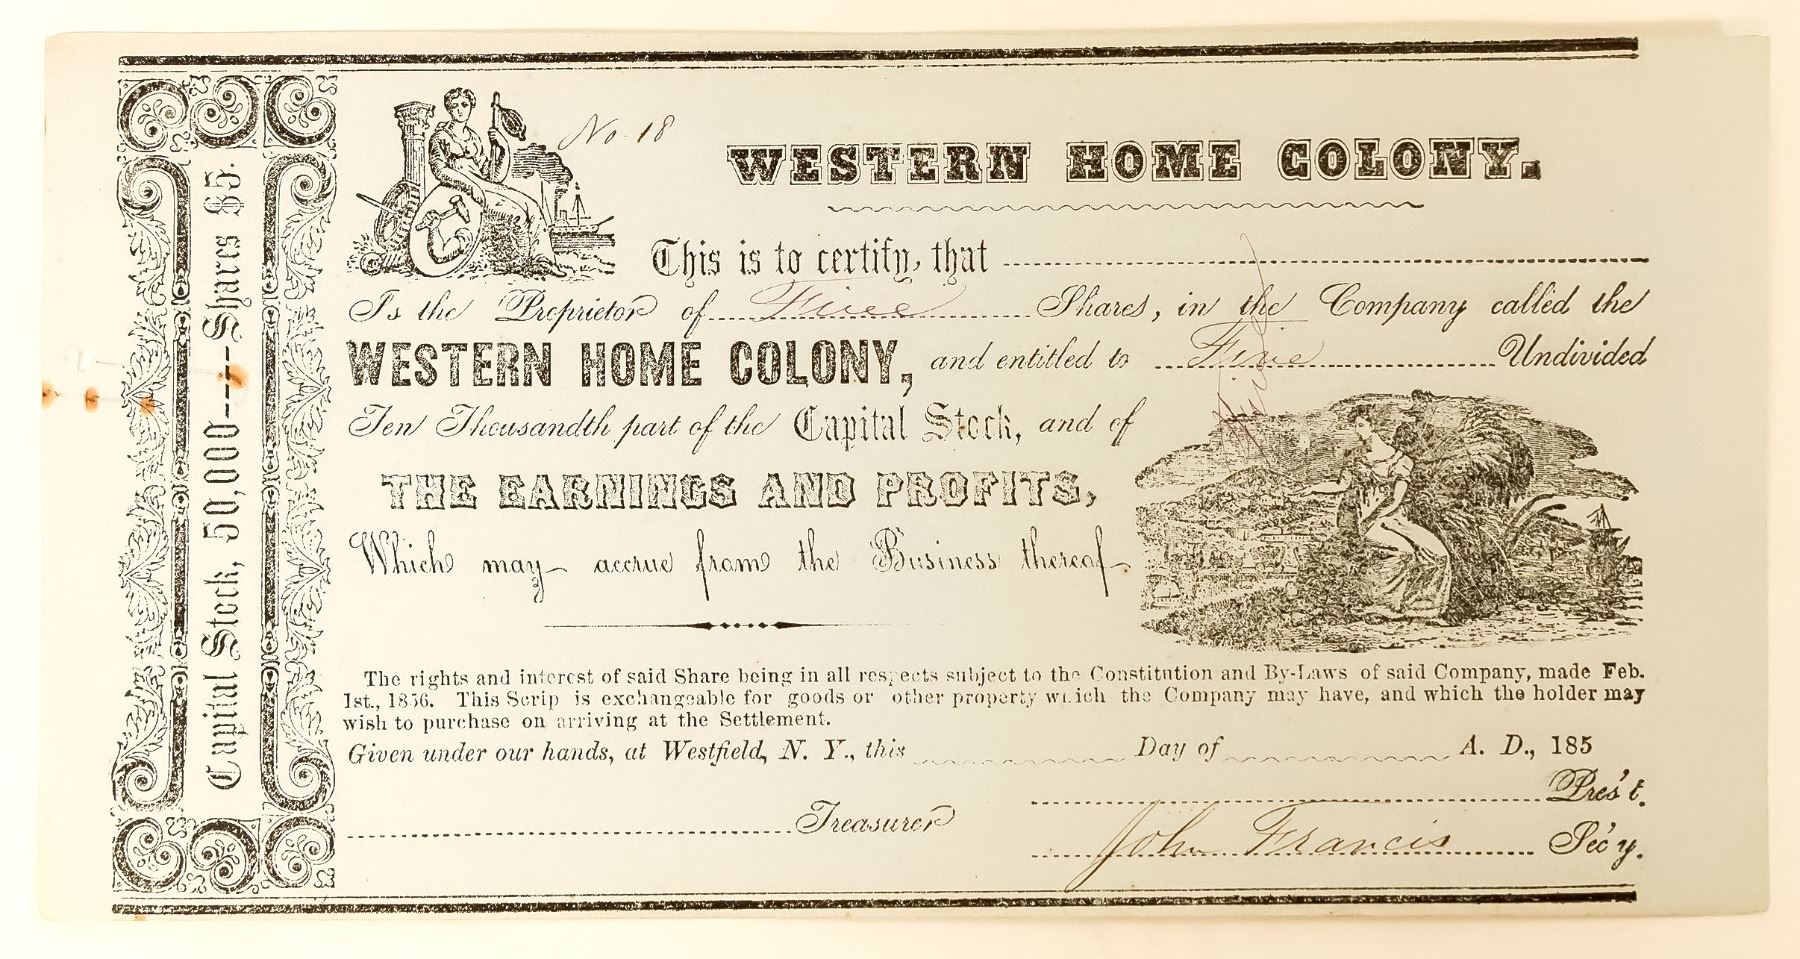 No 18
WESTERN HOME COLONY.
This is to certify, that
Is the Proprietor of Five Shares, in the Company called the
WESTERN HOME COLONY, and entitled to Five Undivided
Ten Thousandth part of the Capital Stock, and of
THE EARNINGS AND PROFITS,
Which may accrue from the Business thereof
The rights and interest of said Share being in all respects subject to the Constitution and By-Laws of said Company, made Feb.
1st., 1856. This Scrip is exchangeable for goods or other property which the Company may have, and which the holder may
wish to purchase on arriving at the Settlement.
Given under our hands, at Westfield, N. Y., this Day of A. D., 185
Pres't.
Treasurer
John Francis Sec'y.
Capital Stock, 50,000----Shares $5.